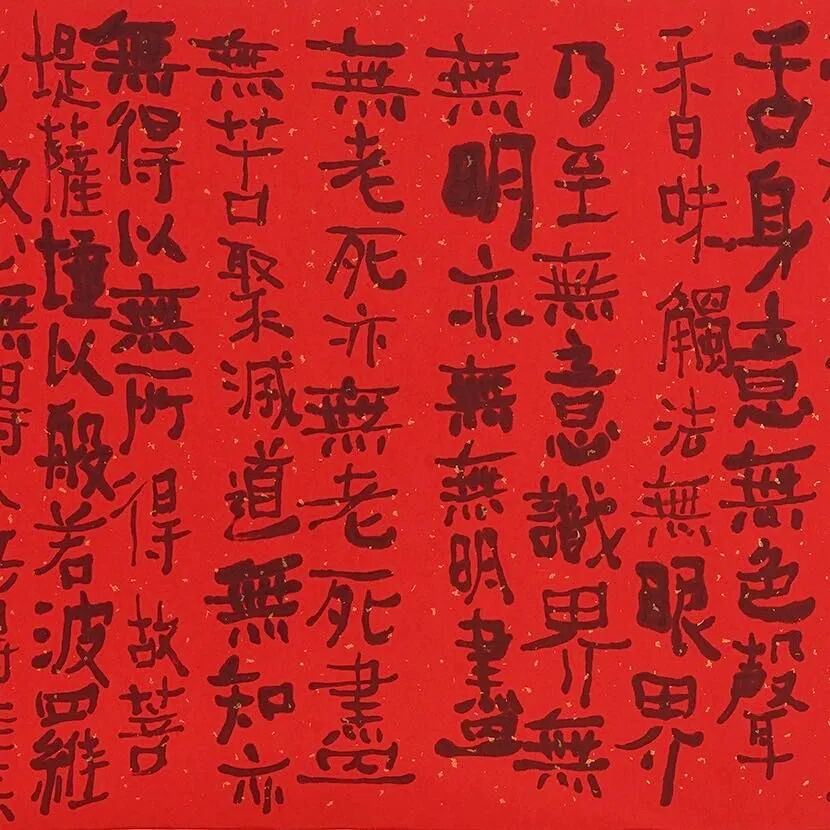 舌身意無色聲
香味觸法無眼界
乃至無意識界無
無明亦無無明盡
無老死亦無老死盡
無苦聚滅道無知亦
無得以無所得故菩
堤薩埵以般若波羅